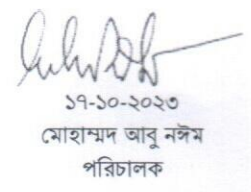 ১৭-১০-২০২৩
মোহাম্মদ আবু নঈম
পরিচালক